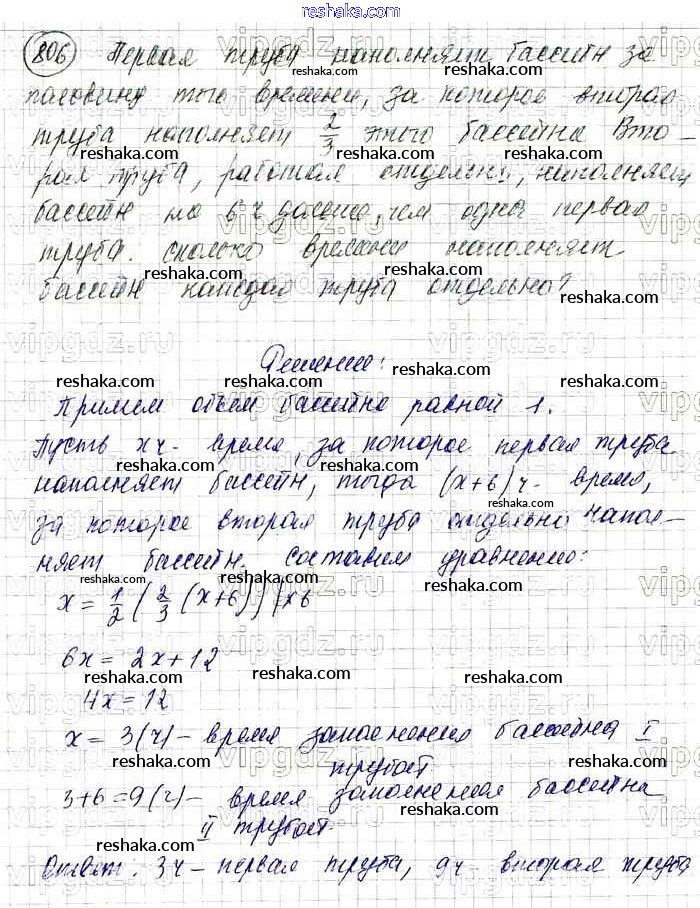 reshaka.com
806 Первая труба наполняет бассейн за
reshaka.com
половину того времени, за которое вторая
reshaka.com
труба наполняет 2/3 этого бассейна Вто-
reshaka.com
рая труба, работая отдельно, наполняет
reshaka.com
бассейн на 6 ч дольше, чем одна первая
reshaka.com
труба. сколько времени наполняет
reshaka.com
бассейн каждая труба отдельно?
reshaka.com
Решение:
reshaka.com
Примем объём бассейна равной 1.
reshaka.com
Пусть x ч - время, за которое первая труба
reshaka.com
наполняет бассейн, тогда (x+6) ч - время,
reshaka.com
за которое вторая труба отдельно напол-
reshaka.com
няет бассейн. Составим уравнение:
reshaka.com
x = 1/2 (2/3 (x+6)) | x6
reshaka.com
6x = 2x + 12
reshaka.com
4x = 12
reshaka.com
x = 3 (ч) - время заполнения бассейна I
трубой
reshaka.com
3+6 = 9 (ч) - время заполнения бассейна
reshaka.com
II трубой
reshaka.com
Ответ: 3 ч - первая труба, 9 ч - вторая труба
reshaka.com